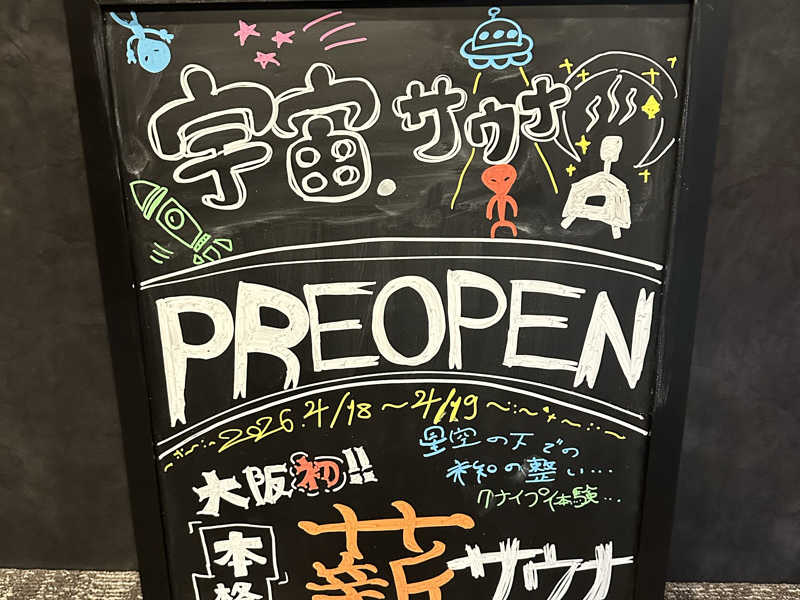 宇宙.サウナ
PREOPEN
2026.4/18～4/19～
星空の下での
未知の整い...
クナイプ体験...
大阪初!!
本格
薪サウナ